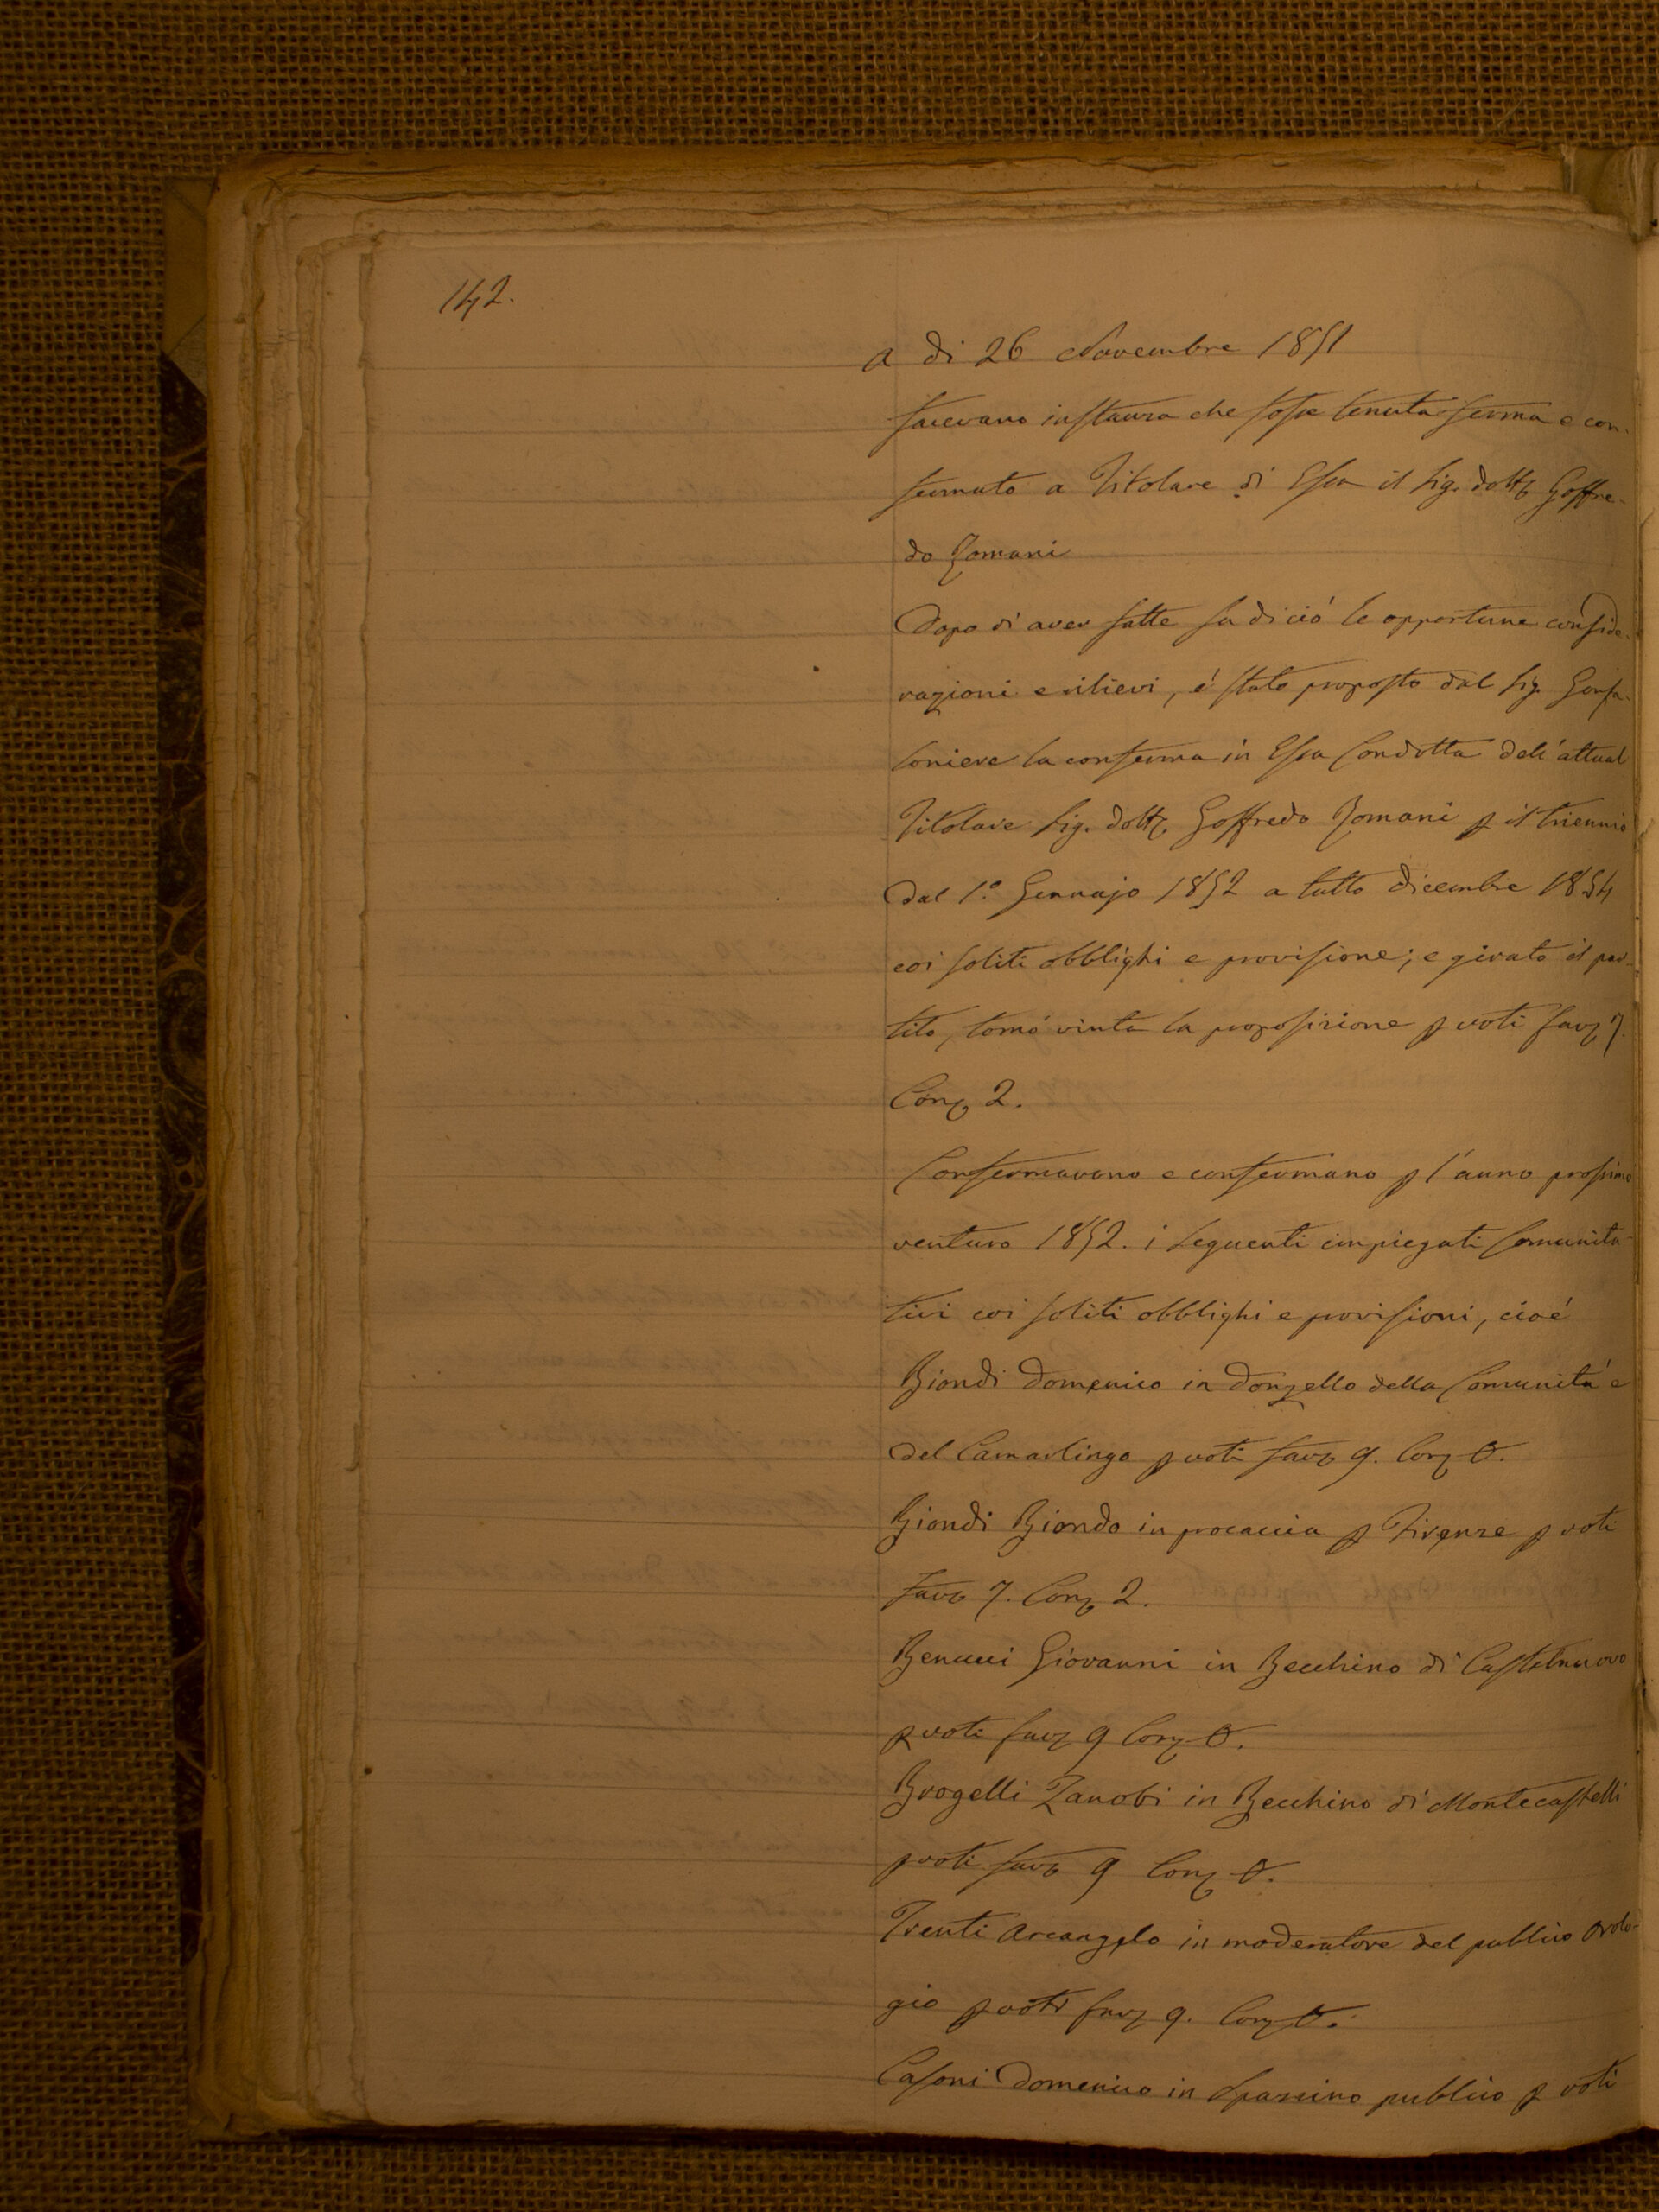 142.
a di 26 Novembre 1851
facevano instanza che fosse tenuta ferma e con-
fermato a Titolare di Essa il Sig. Dott. Goffre-
do Romani
Dopo di aver fatte su di ciò le opportune conside-
razioni e rilievi, é stato proposto dal Sig. Gonfa-
loniere la conferma in Essa Condotta dell'attual
Titolare Sig. Dott. Goffredo Romani p il triennio
dal 1.º Gennajo 1852 a tutto Dicembre 1854
coi soliti obblighi e provisione; e girato il par-
tito, tornó vinta la proposizione p voti fav. 7.
Con. 2.
Confermavano e confermano p l'anno prossimo
venturo 1852. i seguenti impiegati Comunita-
tivi coi soliti obblighi e provisioni, cioé
Biondi Domenico in Donzello della Comunitá e
del Camarlingo p voti fav. 9. Con. 0.
Biondi Biondo in procaccia p Firenze p voti
fav. 7. Con. 2.
Benucci Giovanni in Becchino di Castelnuovo
p voti fav. 9 Con. 0.
Brogelli Zanobi in Becchino di Montecastelli
p voti fav. 9 Con. 0.
Trenti Arcangelo in moderatore del publico Orolo-
gio p voti fav. 9. Con. 0.
Casoni Domenico in Spazzino publico p voti